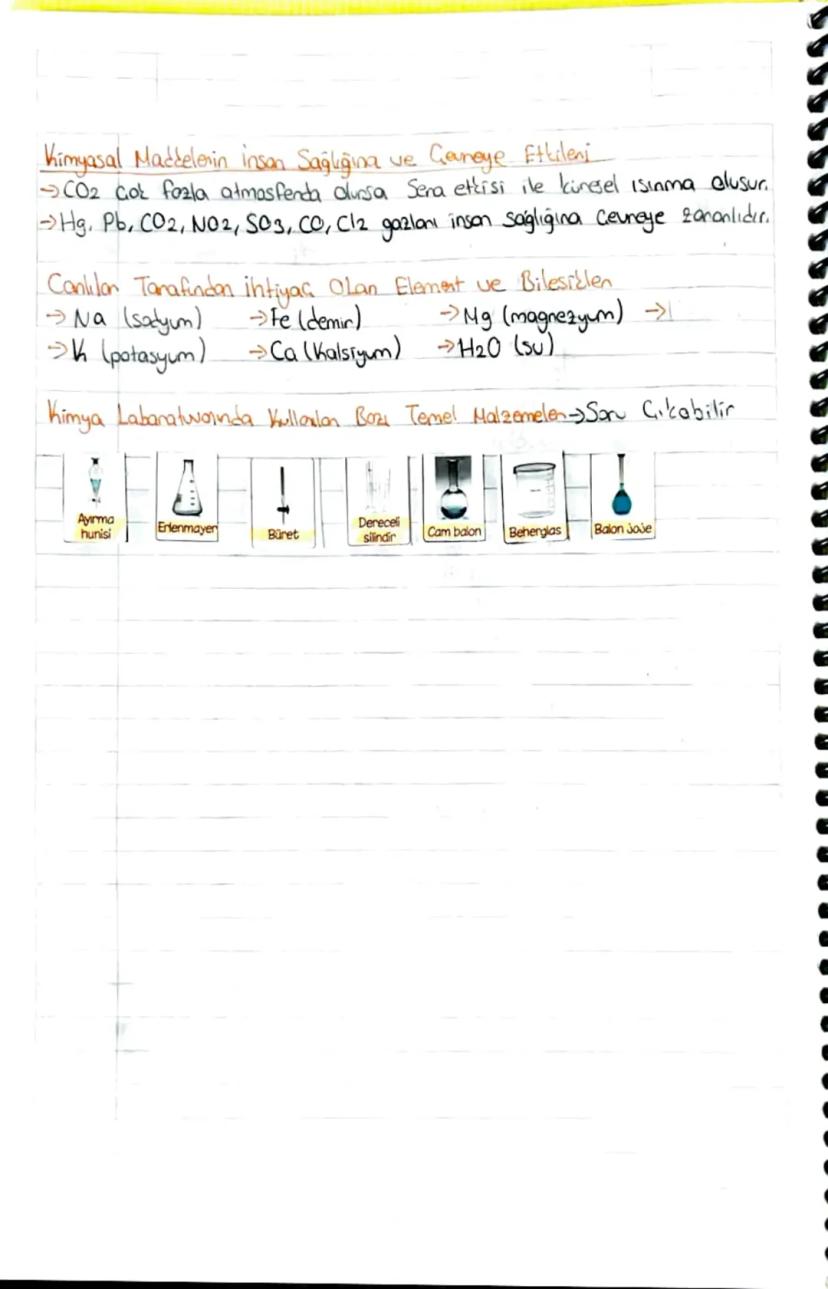 Kimyasal Maddelerin İnsan Sağlığına ve Çevreye Etkileri
→CO2 çok fazla atmosferde olursa Sera etkisi ile küresel ısınma oluşur.
→Hg, Pb, CO2, NO2, SO3, CO, Cl2 gazları insan sağlığına çevreye zararlıdır.
Canlılar Tarafından İhtiyaç Olan Element ve Bileşikler
→Na (sodyum) →Fe (demir) →Mg (magnezyum) →
→K (potasyum) →Ca (Kalsiyum) →H2O (su)
Kimya Labaratuvarında Kullanılan Bazı Temel Malzemeler→Soru Çıkabilir
Ayırma hunisi Erlenmayer Büret Dereceli silindir Cam balon Beherglas Balon joje